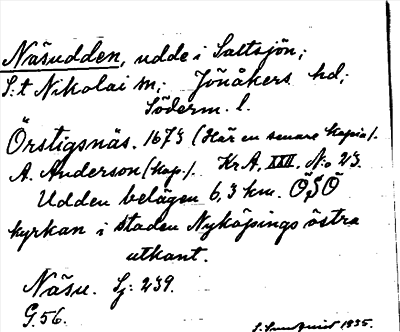 Näsudden, udde i Saltsjön;
S:t Nikolai m; Jönåkers hd;
Söderm. l.
Örstigsnäs. 1673 (Här en senare kopia).
A. Anderson (kop.). Kr A. XXII. No 23.
Udden belägen 6,3 km. ÖSÖ
kyrkan i staden Nyköpings östra
utkant.
Näsu. Sj: 239.
G. 56.
1935.